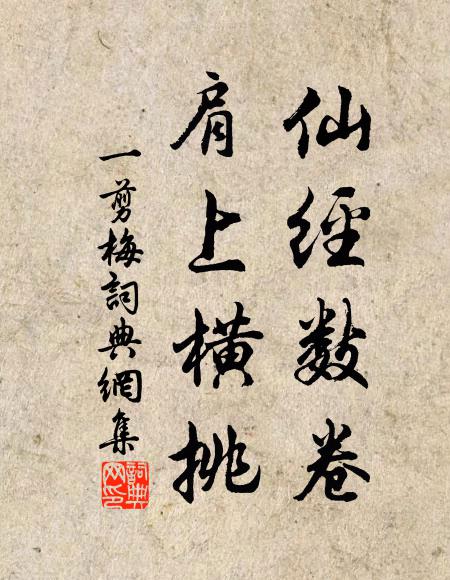 仙經數卷
肩上橫挑
一剪梅詞典網集
詞典網印